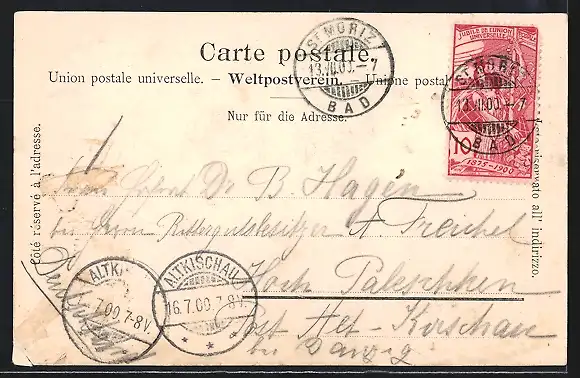 Carte postale.
Union postale universelle. – Weltpostverein. – Unione postale
Nur für die Adresse.
Côté réservé à l'adresse.
riservato all' indirizzo.
ST MORIZ
13.VII.00.–7
BAD
JUBILÉ DE L'UNION
UNIVERSELLE
10
1875–1900
ST MORIZ
13.VII.00.–7
BAD
Dr B. Hagen
bei Herrn Rittergutsbesitzer A. Treichel
Hoch Paleschken
Post Alt-Kischau
bei Danzig
ALTKI
7.00 7-8V.
ALTKISCHAU
16.7.00.7-8V.
* * *